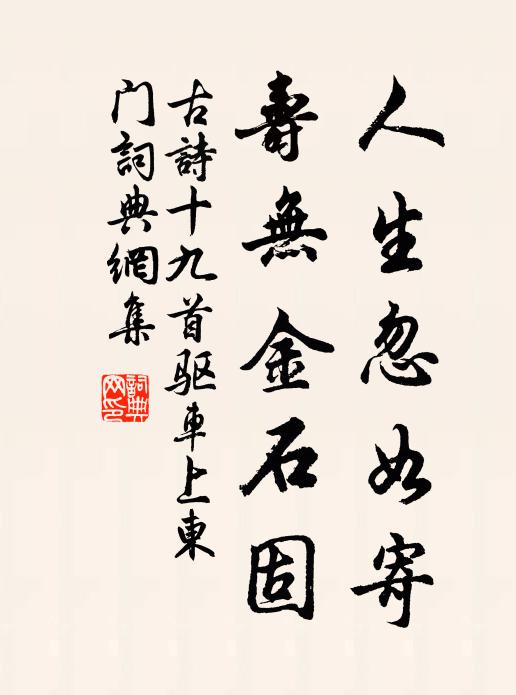 人生忽如寄
壽無金石固
古詩十九首驱車上東
门詞典網集
詞典
网印